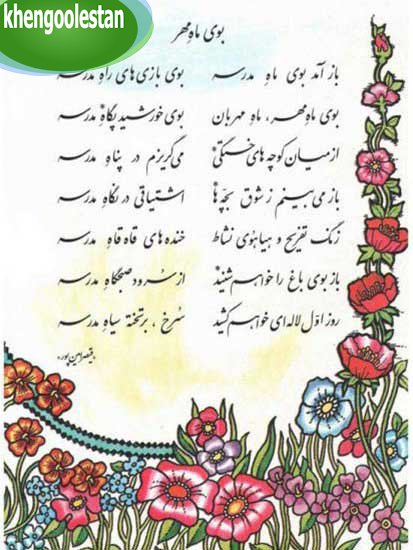 khengoolestan
بوی ماهِ مهر
باز آمد بوی ماه مدرسه بوی بازی‌های راه مدرسه
بوی ماهِ مهر، ماهِ مهربان بوی خورشید پگاهِ* مدرسه
از میان کوچه‌های خستگی* می‌گریزم در پناهِ مدرسه
باز می‌بینم ز شوق بچّه‌ها اشتیاقی در نگاهِ مدرسه
زنگ تفریح و هیاهوی نشاط خنده‌های قاه قاهِ مدرسه
باز بوی باغ را خواهم شنید* از سرود صبحگاهِ مدرسه
روز اوّل لاله‌ای خواهم کشید سرخ، بر تختهٔ سیاهِ مدرسه
«قیصر امین‌پور»